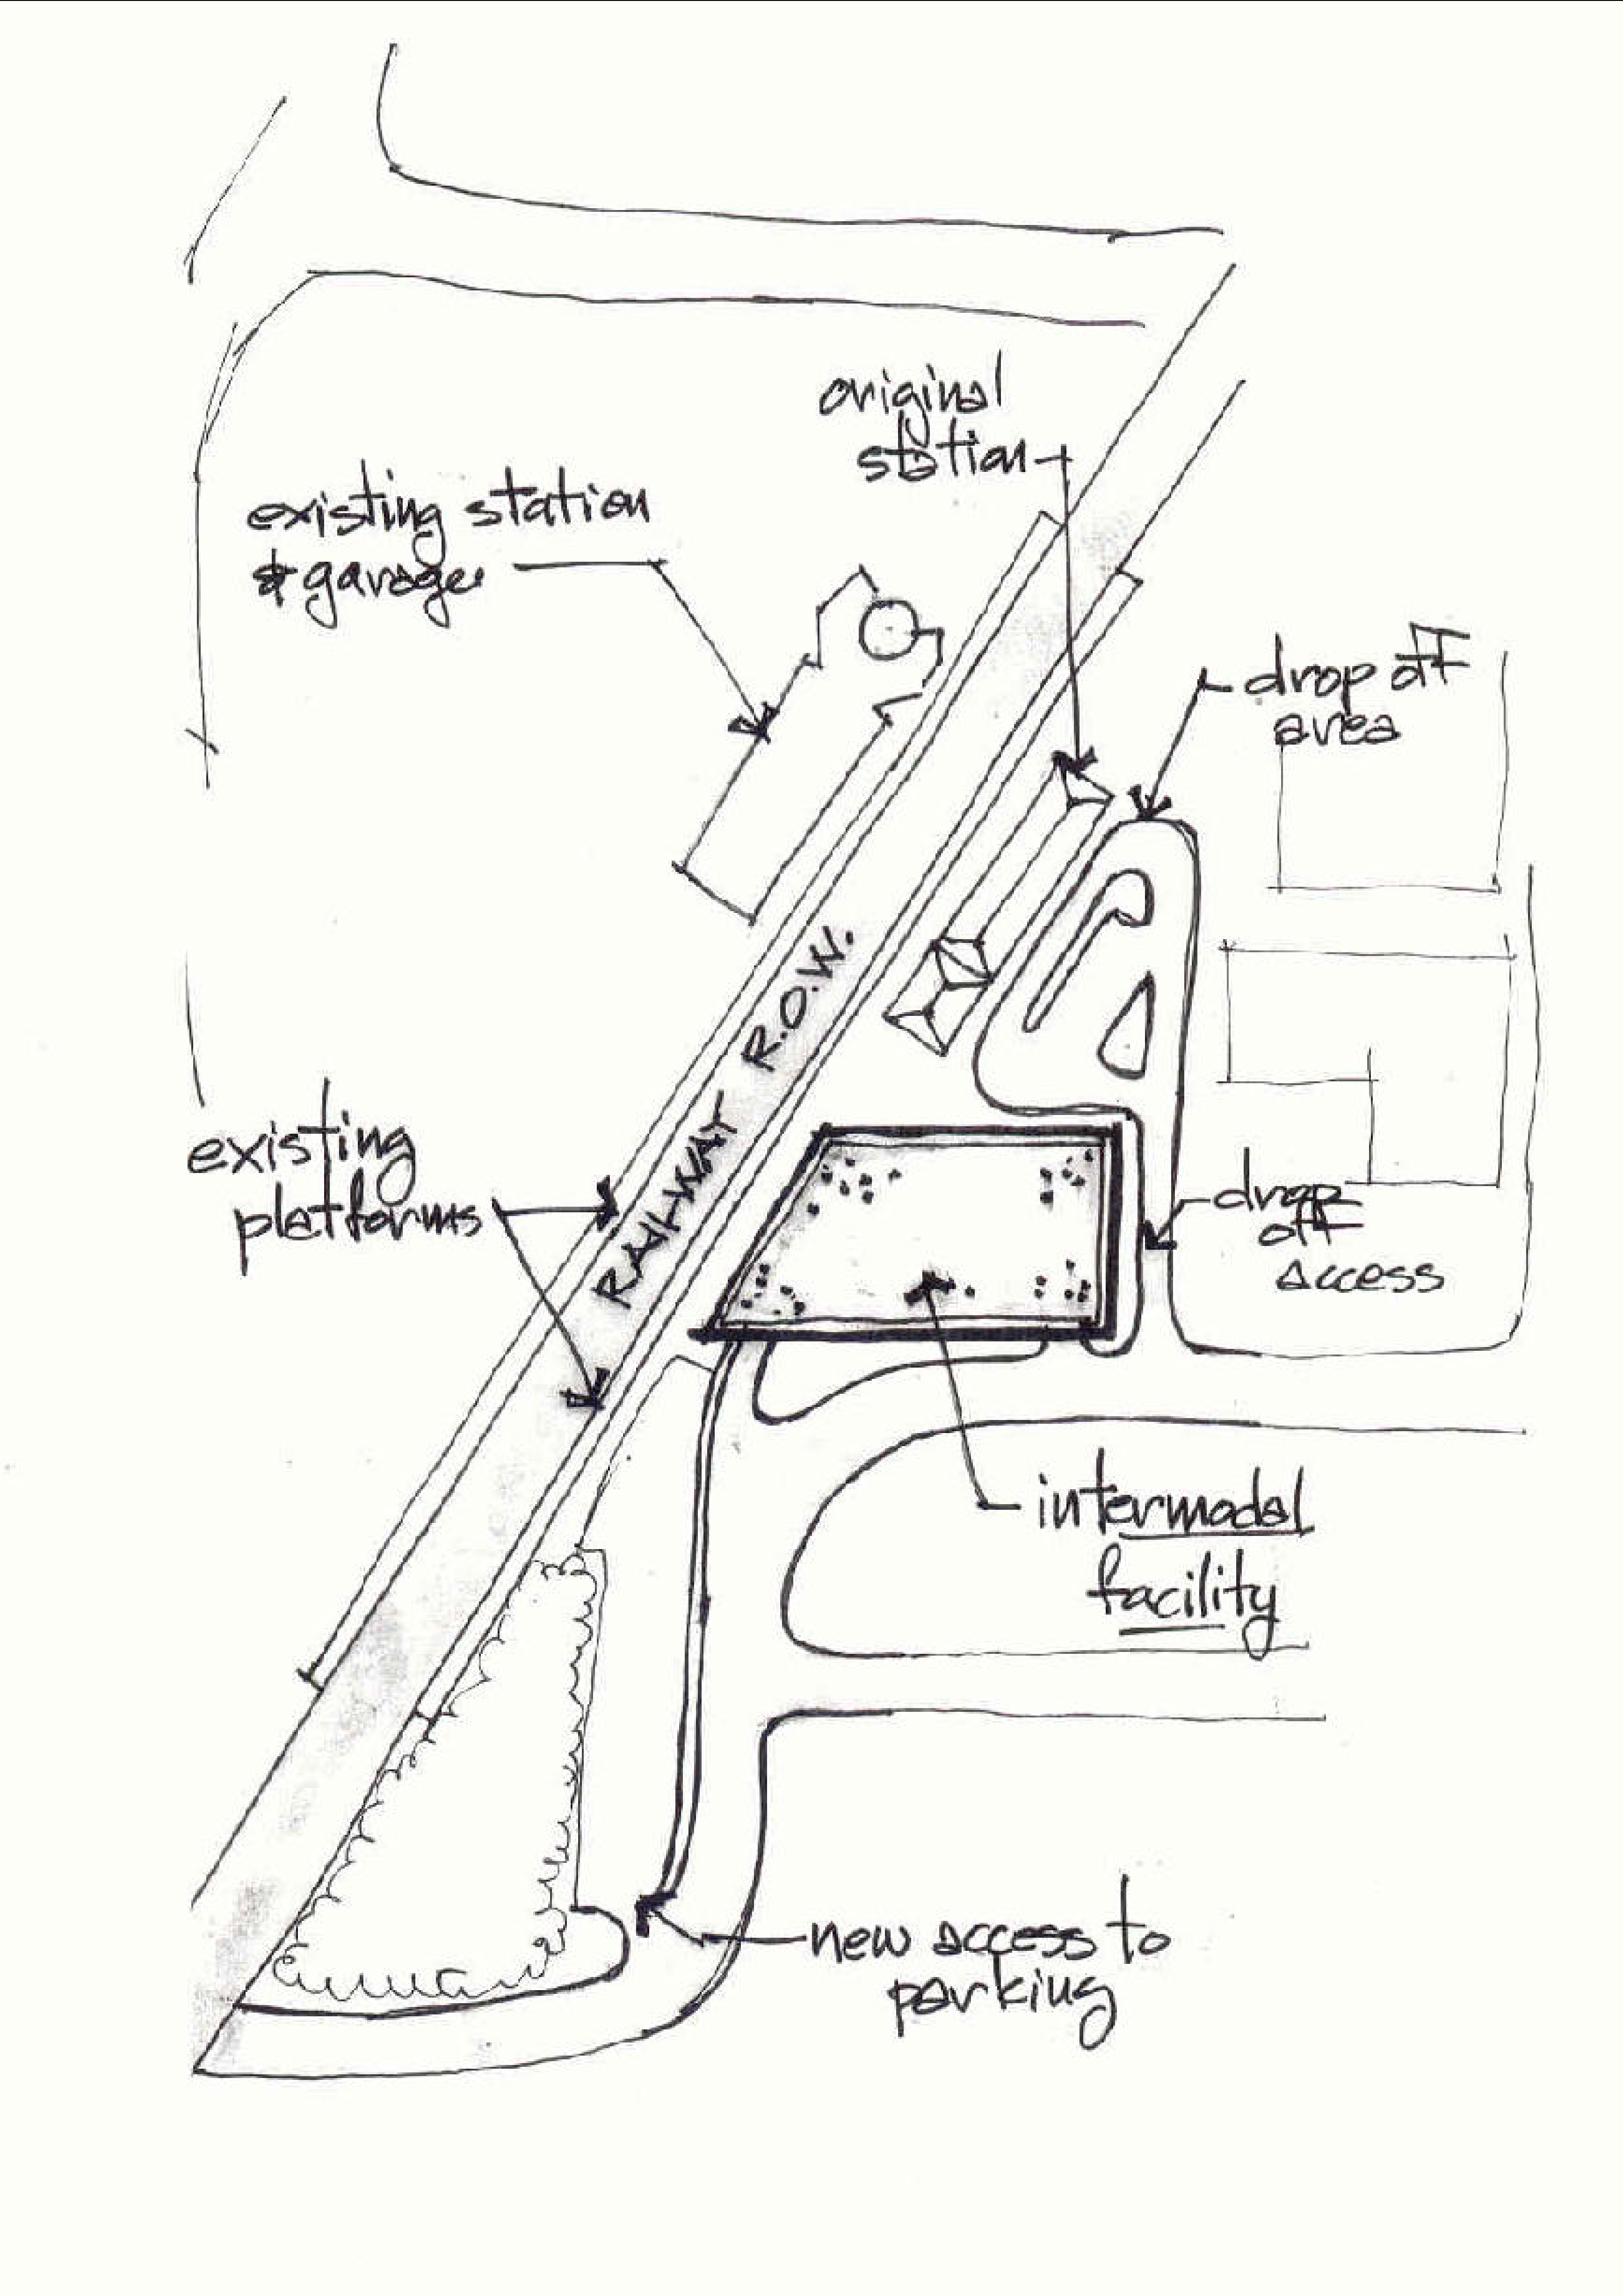 original
station
existing station
& garage
drop off
area
RAILWAY R.O.W.
existing
platforms
drop
off
access
intermodal
facility
new access to
parking